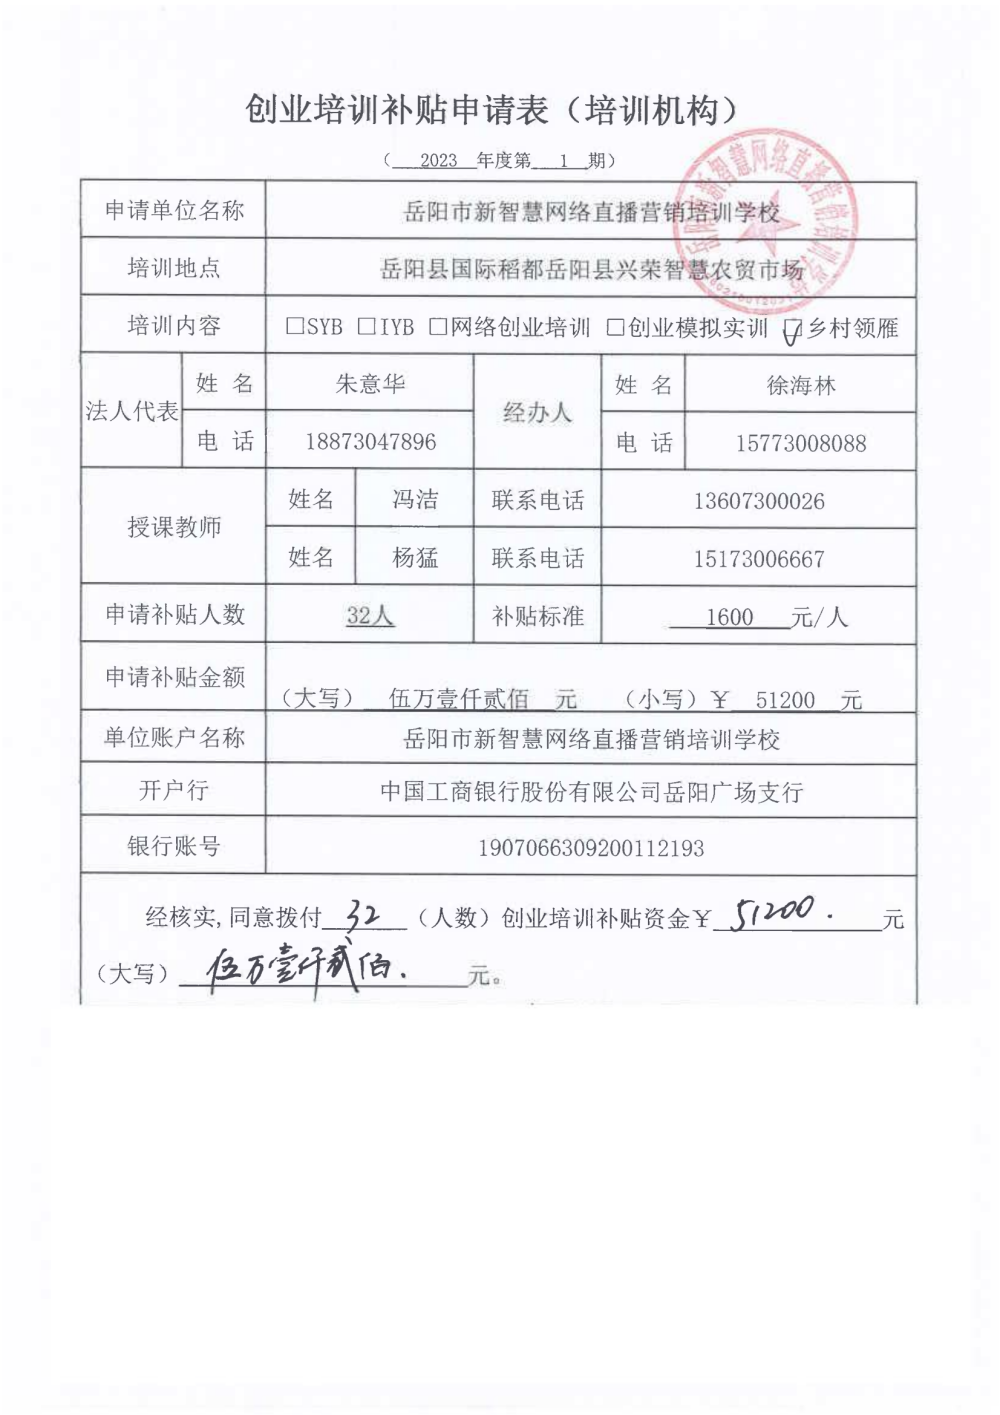 创业培训补贴申请表（培训机构）
（ 2023 年度第 1 期）
申请单位名称 岳阳市新智慧网络直播营销培训学校
培训地点 岳阳县国际稻都岳阳县兴荣智慧农贸市场
培训内容 □SYB □IYB □网络创业培训 □创业模拟实训 ☑乡村领雁
法人代表 姓 名 朱意华 经办人 姓 名 徐海林
电 话 18873047896 电 话 15773008088
授课教师 姓名 冯洁 联系电话 13607300026
姓名 杨猛 联系电话 15173006667
申请补贴人数 32人 补贴标准 1600 元/人
申请补贴金额 （大写） 伍万壹仟贰佰 元 （小写）¥ 51200 元
单位账户名称 岳阳市新智慧网络直播营销培训学校
开户行 中国工商银行股份有限公司岳阳广场支行
银行账号 1907066309200112193
经核实,同意拨付 32 （人数）创业培训补贴资金¥ 51200. 元
（大写） 伍万壹仟贰佰. 元。
岳阳市新智慧网络直播营销培训学校